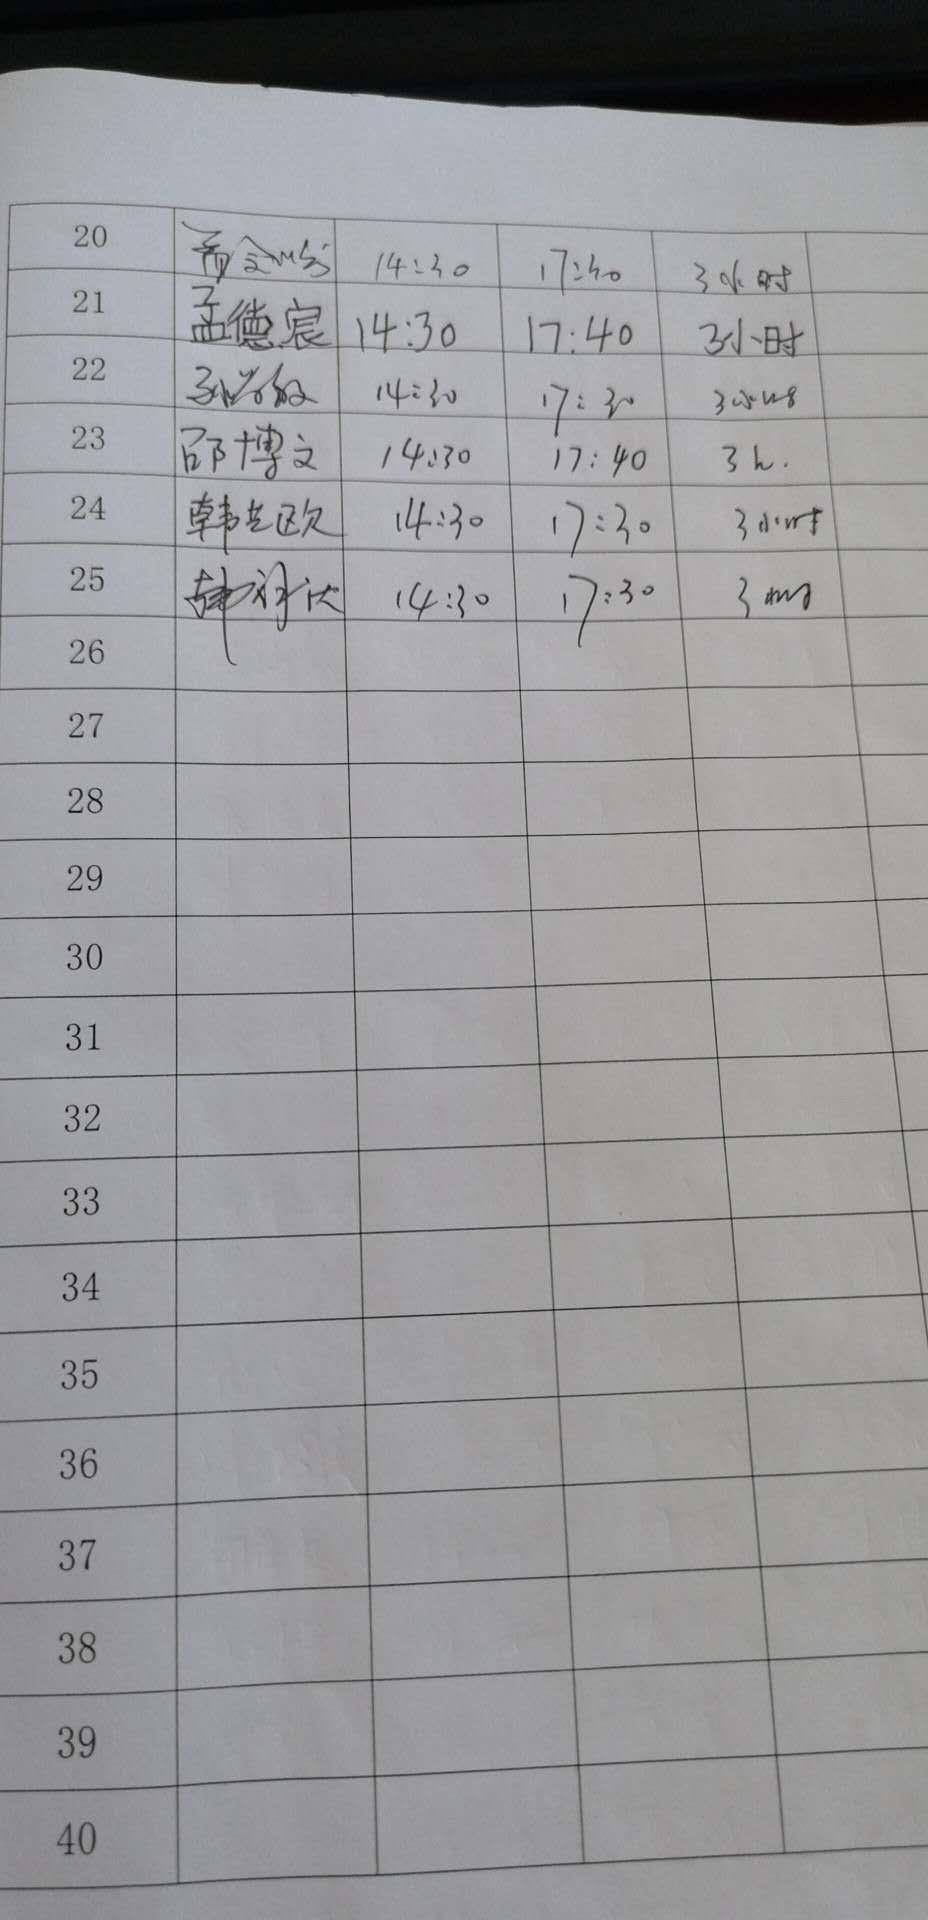 20 14:30 17:30 3小时
21 孟德宸 14:30 17:40 3小时
22 14:30 17:30 3小时
23 邵博文 14:30 17:40 3h.
24 韩 欧 14:30 17:30 3小时
25 韩 14:30 17:30 3小时
26
27
28
29
30
31
32
33
34
35
36
37
38
39
40